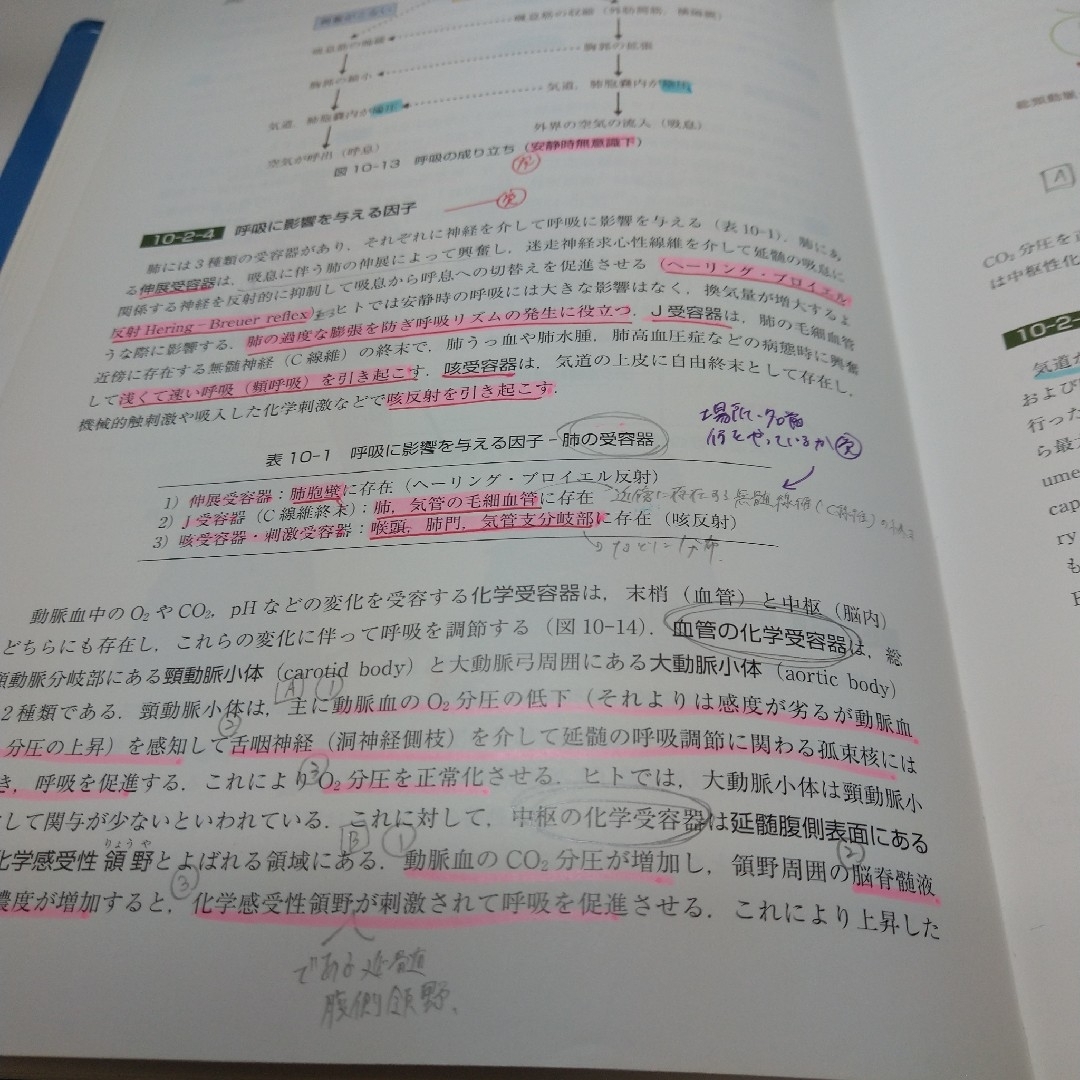 吸息筋の収縮（外肋間筋，横隔膜）
胸郭の縮小
胸郭の拡張
気道，肺胞嚢内が陽圧
気道，肺胞嚢内が陰圧
空気が呼出（呼息）
外界の空気の流入（吸息）
図10-13 呼吸の成り立ち（安静時無意識下）
10-2-4 呼吸に影響を与える因子
肺には3種類の受容器があり，それぞれに神経を介して呼吸に影響を与える（表10-1）．肺にあ
る伸展受容器は，吸息に伴う肺の伸展によって興奮し，迷走神経求心性線維を介して延髄の吸息に
関係する神経を反射的に抑制して吸息から呼息への切替えを促進させる（ヘーリング・ブロイエル
反射Hering-Breuer reflex）．ヒトでは安静時の呼吸には大きな影響はなく，換気量が増大するよ
うな際に影響する．肺の過度な膨張を防ぎ呼吸リズムの発生に役立つ．J受容器は，肺の毛細血管
近傍に存在する無髄神経（C線維）の終末で，肺うっ血や肺水腫，肺高血圧症などの病態時に興奮
して浅くて速い呼吸（頻呼吸）を引き起こす．咳受容器は，気道の上皮に自由終末として存在し，
機械的触刺激や吸入した化学刺激などで咳反射を引き起こす．
場所，名前
何をやっているか
表10-1 呼吸に影響を与える因子-肺の受容器
1）伸展受容器：肺胞壁に存在（ヘーリング・ブロイエル反射）
2）J受容器（C線維終末）：肺，気管の毛細血管に存在 近傍に存在する無髄線維（C線維）の
3）咳受容器・刺激受容器：喉頭，肺門，気管支分岐部に存在（咳反射）
のなどに分布
動脈血中のO₂やCO₂，pHなどの変化を受容する化学受容器は，末梢（血管）と中枢（脳内）
どちらにも存在し，これらの変化に伴って呼吸を調節する（図10-14）．血管の化学受容器は，総
頸動脈分岐部にある頸動脈小体（carotid body）と大動脈弓周囲にある大動脈小体（aortic body）
A ①
2種類である．頸動脈小体は，主に動脈血のO₂分圧の低下（それよりは感度が劣るが動脈血
②
分圧の上昇）を感知して舌咽神経（洞神経側枝）を介して延髄の呼吸調節に関わる孤束核には
③
き，呼吸を促進する．これによりO₂分圧を正常化させる．ヒトでは，大動脈小体は頸動脈小
して関与が少ないといわれている．これに対して，中枢の化学受容器は延髄腹側表面にある
B ①
化学感受性領野とよばれる領域にある．動脈血のCO₂分圧が増加し，領野周囲の脳脊髄液
りょうや
②
③
濃度が増加すると，化学感受性領野が刺激されて呼吸を促進させる．これにより上昇した
である延髄
腹側領野．
A
CO₂分圧を
は中枢性化
10-2-
気道が
および
行った
ら最
ume
cap
ry
も